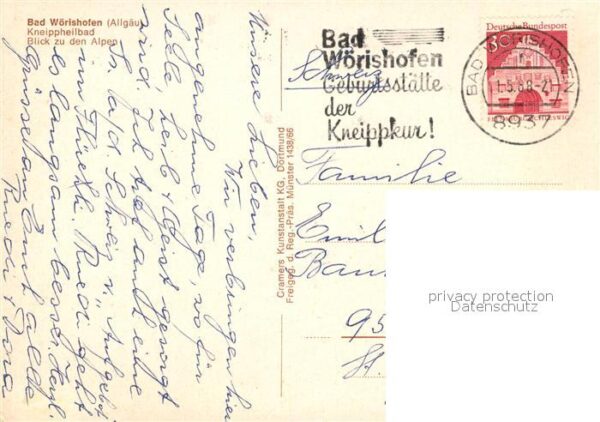 Bad Wörishofen (Allgäu)
Kneippheilbad
Blick zu den Alpen
Meine Lieben,
Wir verbringen hier
angenehme Tage, so für
Seele, Leib & Geist gesorgt
wird. Jetzt hat auch eine
Schweiz
im
Ruedi geht
es langsam besser. Herzl.
Grüsse an Euch alle
Ruedi & Dora
Cramers Kunstanstalt KG, Dortmund
Freigeg. d. Reg.-Präs. Münster 1438/66
Bad
Wörishofen
Geburtsstätte
der
Kneippkur!
Schweiz
Deutsche Bundespost
BAD WÖRISHOFEN
8937
Familie
Emil
95
St.
privacy protection
Datenschutz